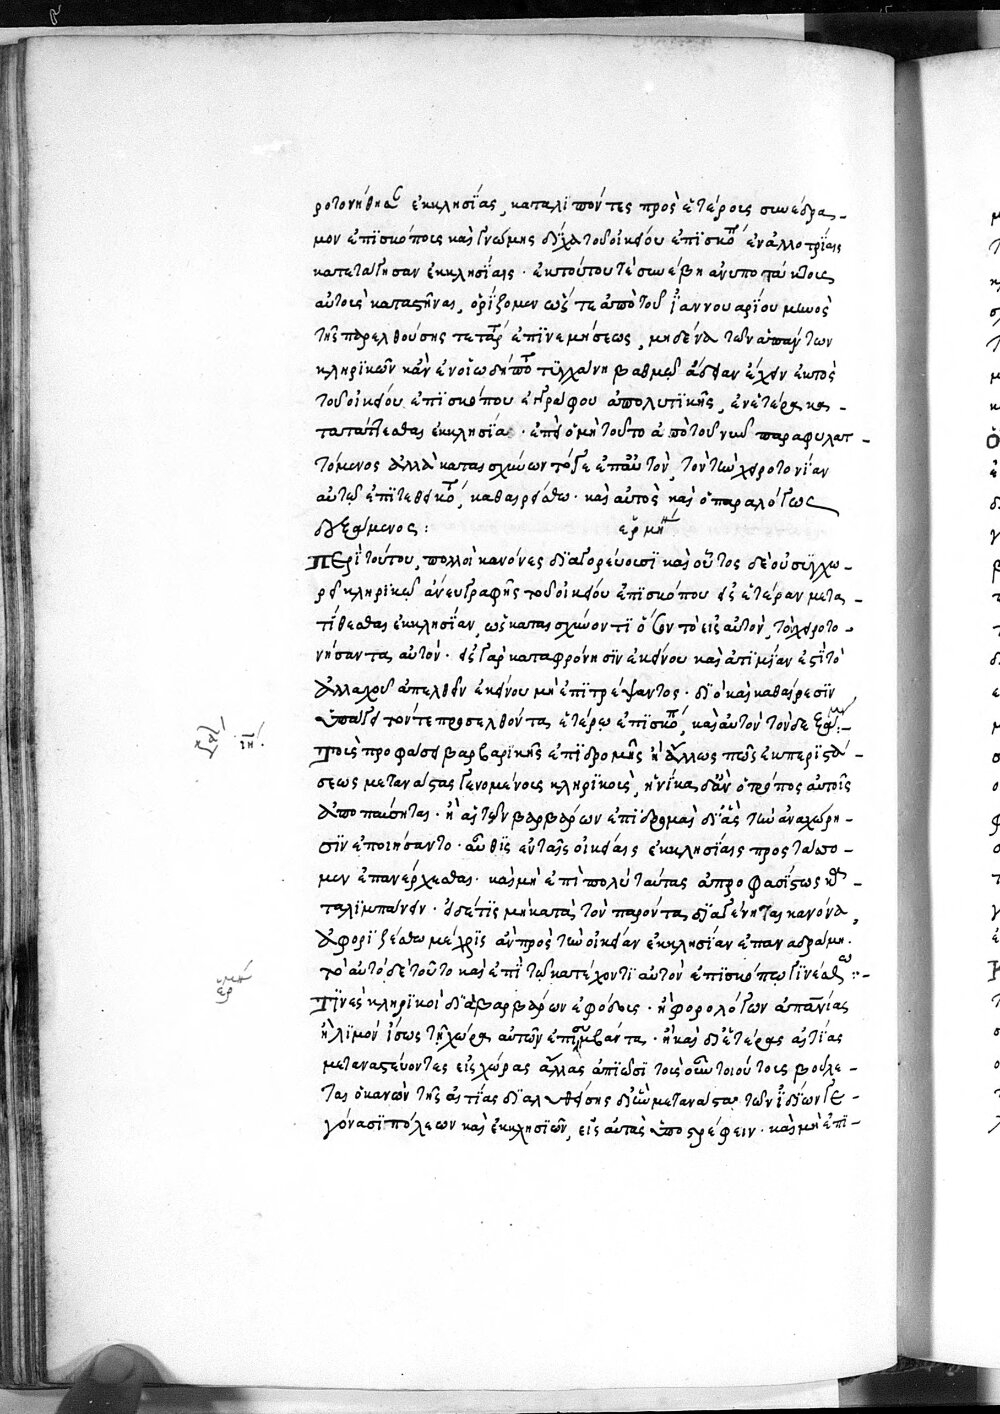 ροτονήθησ(αν) ἐκκλησίας, καταλιπόντες πρὸς ἑτέροις συνέδρα-
μον ἐπισκόποις καὶ γνώμης δίχα τοῦ οἰκείου ἐπισκό(που) ἐν ἀλλοτρίαις
κατετάγησαν ἐκκλησίαις · ἐκ τούτου τὲ συνέβη ἀνυποτάκτους
αὐτοὺς καταστῆναι, ὁρίζομεν ὥστε ἀπὸ τοῦ ἰαννουαρίου μηνὸς
τῆς παρελθούσης τετάρ(της) ἐπινεμήσεως, μηδένα τῶν ἁπάντων
κληρικῶν κἂν ἐν οἵω δήπο(τε) τυγχάνη βαθμῶ ἄδειαν ἔχειν ἐκτὸς
τοῦ οἰκείου ἐπισκόπου ἐγγράφου ἀπολυτικῆς, ἐν ἑτέρα κα-
τατάττεσθαι ἐκκλησία · ἐπεὶ ὁ μὴ τοῦτο ἀπὸ τοῦ νῦν παραφυλατ-
τόμενος ἀλλὰ καταισχύνων τό γε ἐπ' αὐτὸν, τὸν τὴν χειροτονίαν
αὐτῶ ἐπιτεθεικό(τα), καθαιρείσθω · καὶ αὐτὸς καὶ ὁ παραλόγως
δεξάμενος :	ἑρμη(νεία)
Περὶ τούτου, πολλοὶ κανόνες διαγορεύουσι καὶ οὗτος δὲ οὐ συγχω-
ρεῖ κληρικῶ ἄνευ γραφῆς τοῦ οἰκείου ἐπισκόπου εἰς ἑτέραν μετα-
τίθεσθαι ἐκκλησίαν, ὡς καταισχύνοντι ὅσον τὸ εἰς αὐτὸν, τὸν χειροτο-
νήσαντα αὐτὸν · εἰς γὰρ καταφρόνησιν ἐκείνου καὶ ἀτιμίαν ἐστὶ τὸ
ἀλλαχοῦ ἀπελθεῖν ἐκείνου μὴ ἐπιτρέψαντος · διὸ καὶ καθαιρέσιν
ὑπάγει τόν τε προσελθόντα ἑτέρω ἐπισκό(πω), καὶ αὐτὸν τὸν δεξάμ(ενον) :-
ιη΄. Τοὺς προφάσει βαρβαρικῆς ἐπιδρομῆς ἢ ἄλλως πῶς ἐκ περιστά-
σεως μετανάστας γενομένους κληρικοὺς, ἡνίκα δ' ἂν ὁ τρόπος αὐτοῖς
ἀποπαύσηται · ἢ αἱ τῶν βαρβάρων ἐπιδρομαὶ δι' ἃς τὴν ἀναχώρη-
σιν ἐποιήσαντο · αὖθις ἐν ταῖς οἰκείαις ἐκκλησίαις προστάττο-
μεν ἐπανέρχεσθαι · καὶ μὴ ἐπιπολὺ ταύτας ἀπροφασίστως κα-
ταλιμπάνειν · εἰ δέ τις μὴ κατὰ τὸν παρόντα διαγένηται κανόνα,
ἀφοριζέσθω μέχρις ἂν πρὸς τὴν οἰκείαν ἐκκλησίαν ἐπαναδράμη ·
τὸ αὐτὸ δὲ τοῦτο καὶ ἐπὶ τῶ κατέχοντι αὐτὸν ἐπισκόπω γινέσθ(ω) :-
ἑρμη(νεία) Τινὲς κληρικοὶ διὰ βαρβάρων ἐφόδους · ἢ φορολόγων ἀπανίας
ἢ λιμὸν ἴσως τῆ χώρα αὐτῶν ἐπισυμβάντα · ἢ καὶ δι' ἑτέρας αἰτίας
μεταναστεύοντες εἰς χώρας ἄλλας ἀπίωσι τοὺς οὖν τοιούτους βούλε-
ται ὁ κανὼν τῆς αἰτίας διαλυθείσης δι' ἣν μετανάσται τῶν ἰδίων γε-
γόνασι πόλεων καὶ ἐκκλησιῶν, εἰς αὐτὰς ὑποστρέφειν · καὶ μὴ ἐπι-